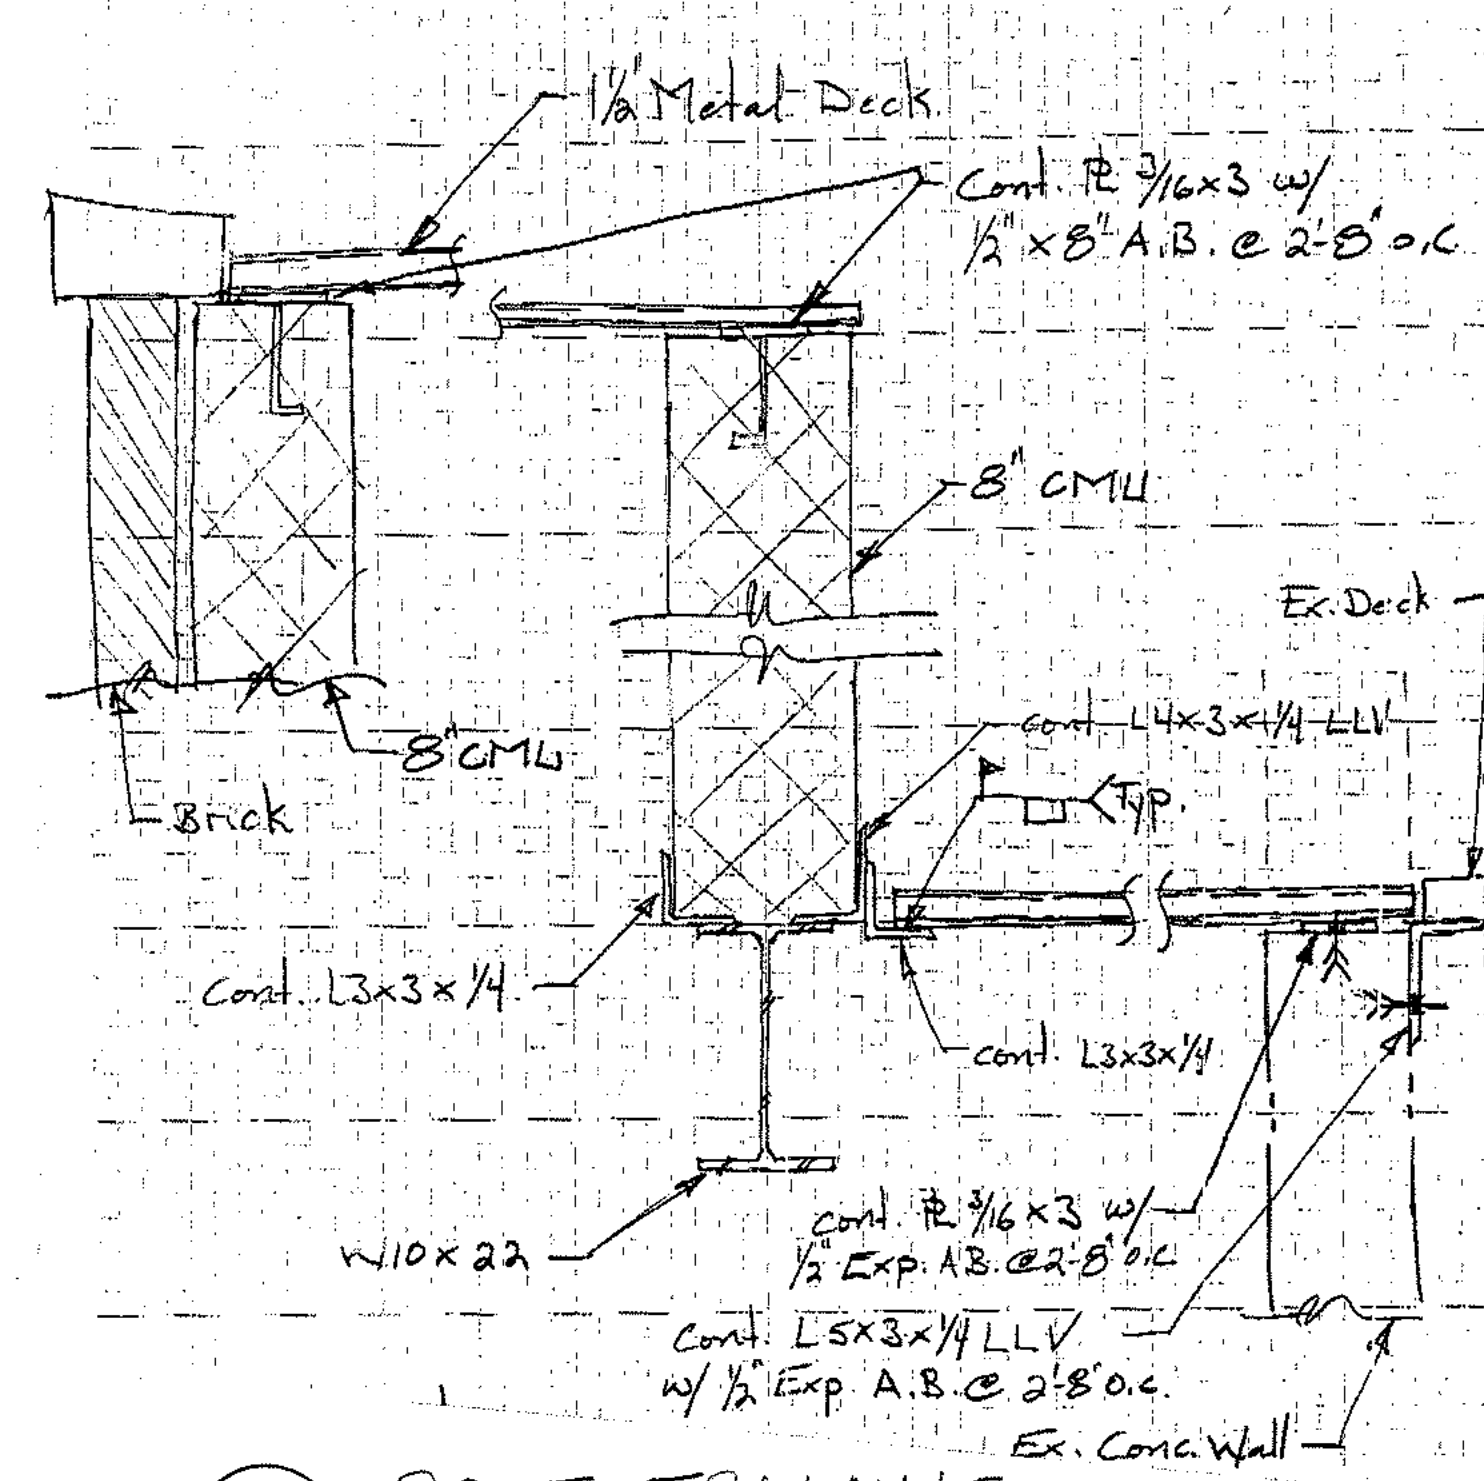 1½" Metal Deck
Cont. PL 3/16x3 w/
½" x 8" A.B. @ 2'-8" o.c.
8" CMU
Ex. Deck
cont. L4x3x1/4 LLV
8" CMU
Typ.
Brick
Cont. L3x3x1/4
cont. L3x3x1/4
cont. PL 3/16x3 w/
½" Exp. A.B. @ 2'-8" o.c.
W10x22
Cont. L5x3x1/4 LLV
w/ ½" Exp. A.B. @ 2'-8" o.c.
Ex. Conc. Wall